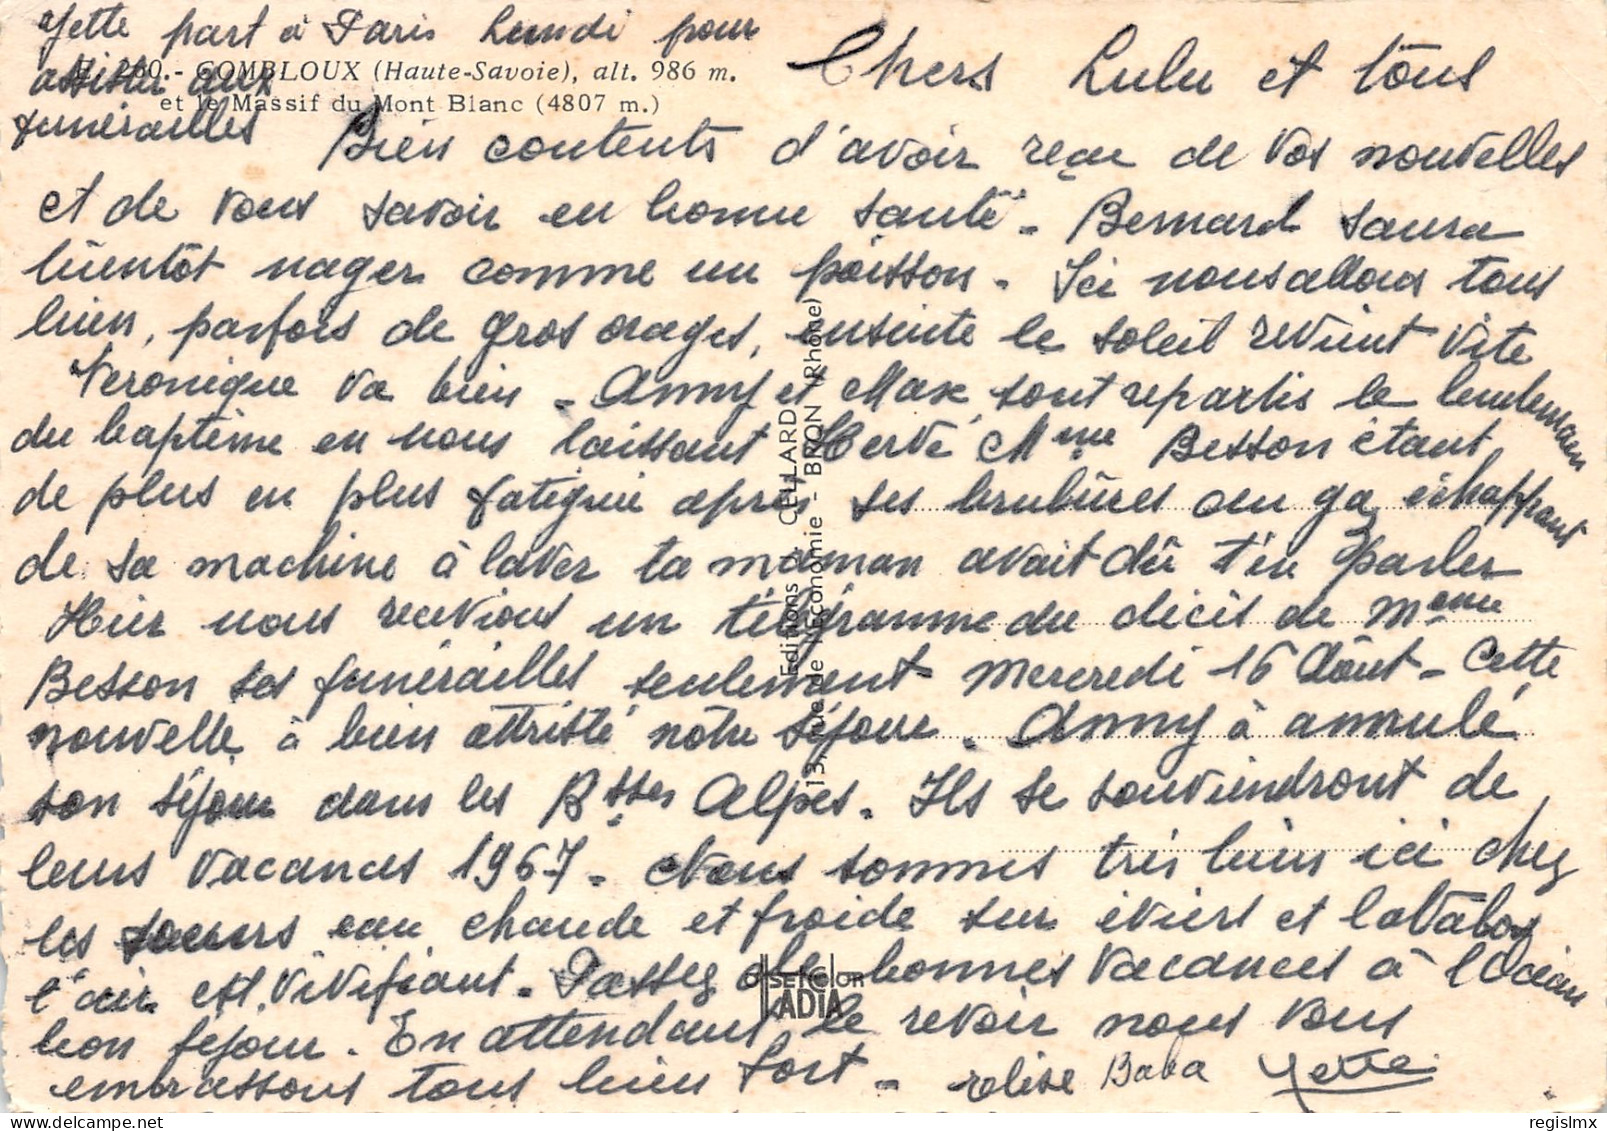 Yette part à Paris Lundi pour
assister aux
funérailles
E. 260. - COMBLOUX (Haute-Savoie), alt. 986 m.
et le Massif du Mont Blanc (4807 m.)
Chers Lulu et tous
Bien contents d'avoir reçu de vos nouvelles
et de vous savoir en bonne santé - Bernard saura
bientôt nager comme un poisson - Ici nous allons tous
bien, parfois de gros orages, ensuite le soleil revient vite
Véronique va bien - Anny et Max sont repartis le lendemain
du baptême en nous laissant Hervé, Mme Besson étant
de plus en plus fatiguée après ses brulûres au gaz échappant
de sa machine à laver ta maman avait dû t'en parler
Hier nous recevions un télégramme du décès de Mme
Besson ses funérailles seulement mercredi 16 Août - Cette
nouvelle à bien attristé notre séjour - Anny à annulé
son séjour dans les Bsses Alpes. Ils se souviendront de
leurs vacances 1967 - Nous sommes très bien ici chez
les soeurs eau chaude et froide sur éviers et lavabos
l'air est vivifiant - Passez de bonnes vacances à l'Océan
bon séjour. En attendant le revoir nous vous
embrassons tous bien fort - Elise Baba Yette
Editions J. CELLARD
13, Rue de l'Economie - BRON (Rhône)
OFFSETCOLOR
ADIA
regislmx